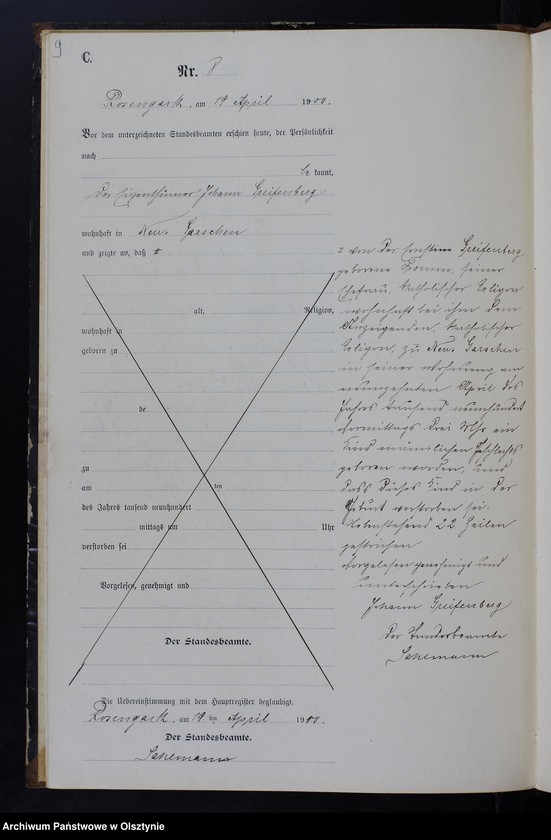 9
C.
Nr. 8
Rosengarth, am 19 April 1900.
Vor dem unterzeichneten Standesbeamten erschien heute, der Persönlichkeit
nach
be kannt,
der Eigenthümer Johann Greifenberg
wohnhaft in Neu. Garschen
und zeigte an, daß
alt, Religion,
wohnhaft in
geboren zu
de
zu
am ten
des Jahres tausend neunhundert
mittags um Uhr
verstorben sei
Vorgelesen, genehmigt und
Der Standesbeamte.
von der Ernstine Greifenberg
geborene seiner
Ehefrau, katholischer Religion
wohnhaft bei ihm dem
Anzeigenden, katholischer
Religion, zu Neu. Garschen
in seiner Wohnung am
neunzehnten April des
Jahres tausend neunhundert
Vormittags drei Uhr ein
Kind männlichen Geschlechts
geboren worden, und
dass dieses Kind in der
Geburt verstorben sei.
Nebenstehend 22 Zeilen
gestrichen
Vorgelesen genehmigt und
unterschrieben
Johann Greifenberg
Der Standesbeamte
Die Uebereinstimmung mit dem Hauptregister beglaubigt.
Rosengarth, am 19 ten April 1900.
Der Standesbeamte.
Archiwum Państwowe w Olsztynie